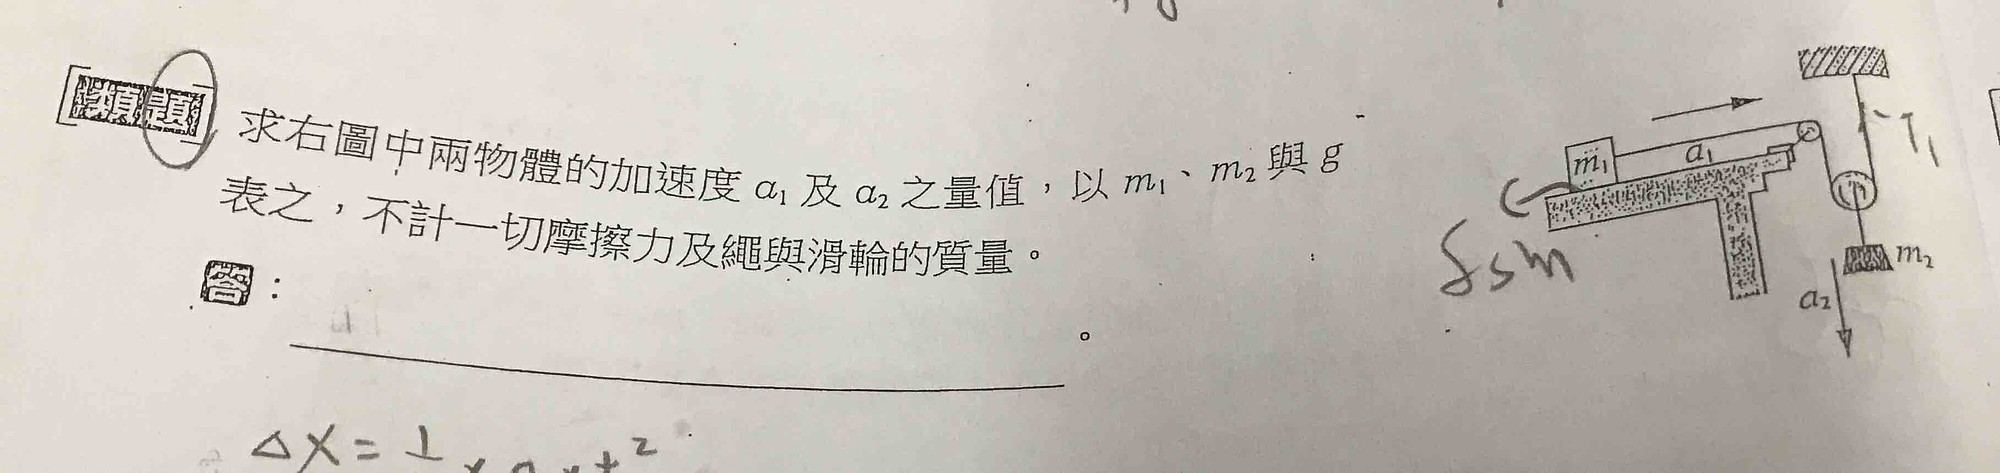 [類題] 求右圖中兩物體的加速度 a₁ 及 a₂ 之量值，以 m₁、m₂ 與 g
表之，不計一切摩擦力及繩與滑輪的質量。
答：
。
m₁
a₁
T₁
m₂
a₂
fsm
ΔX = 1